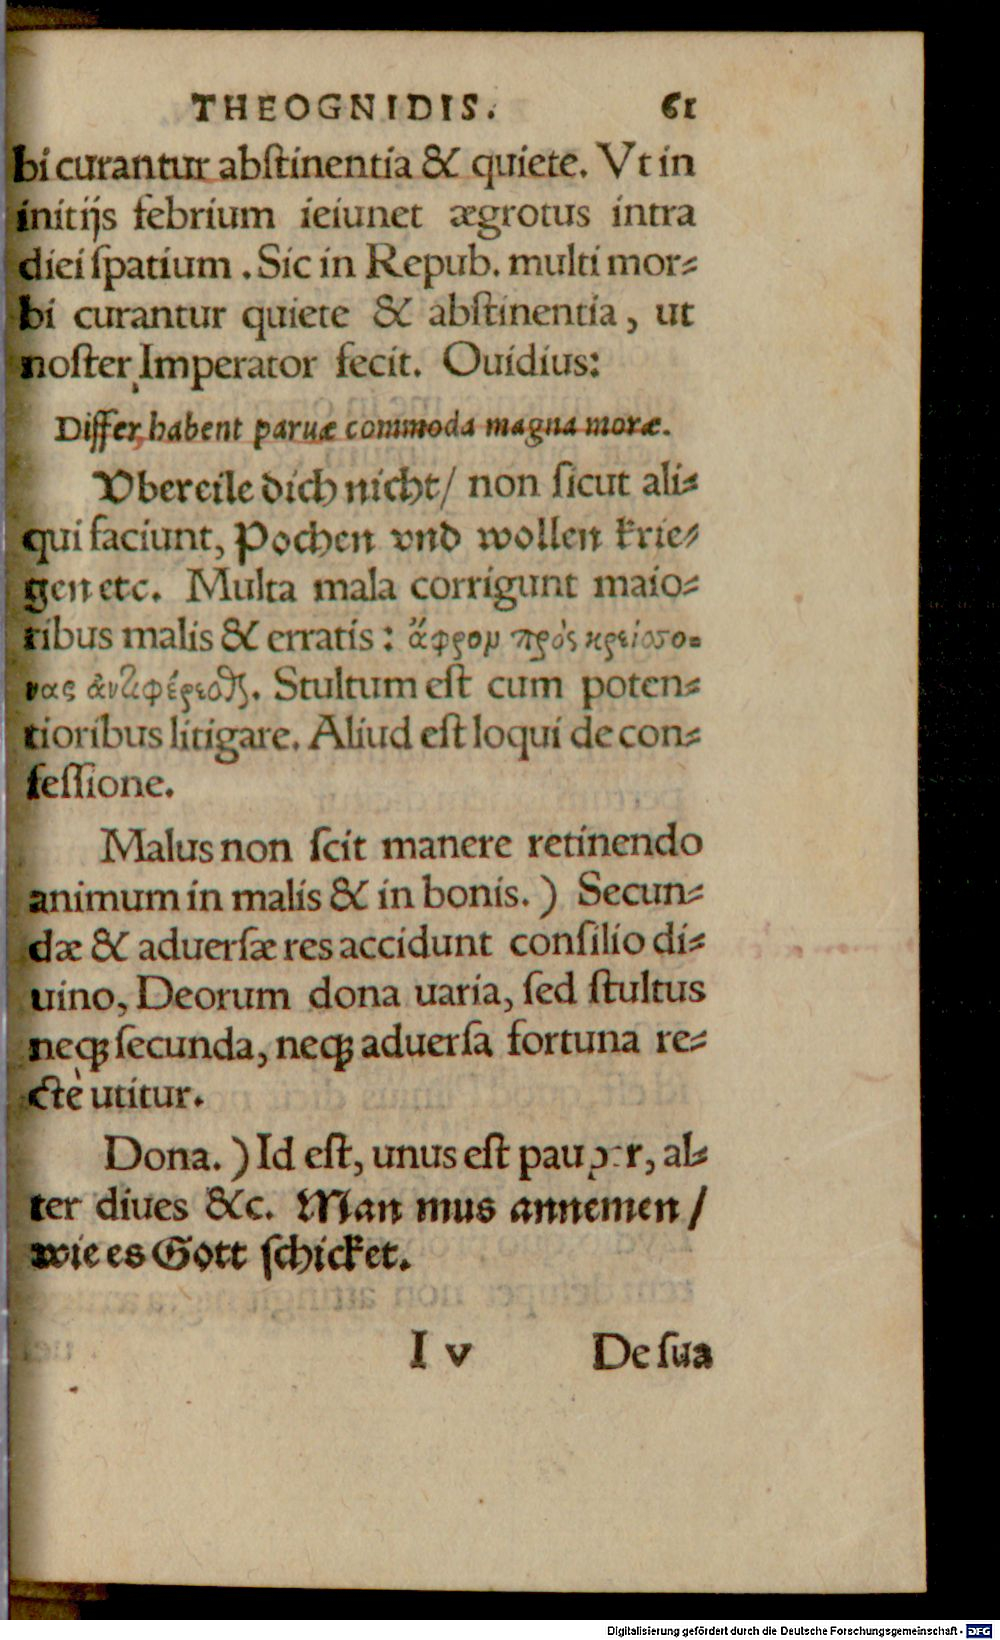 THEOGNIDIS. 61
bi curantur abſtinentia & quiete. Vt in
initijs febrium ieiunet ægrotus intra
diei ſpatium. Sic in Repub. multi mor⸗
bi curantur quiete & abſtinentia, ut
noſter Imperator fecit. Ouidius:
Differ, habent paruæ commoda magna moræ.
Vbereile dich nicht/ non ſicut ali⸗
qui faciunt, Pochen vnd wollen krie⸗
gen etc. Multa mala corrigunt maio⸗
ribus malis & erratis: ἄφρομ πρὸς κρείοσο⸗
νας ἀντιφέρεσθαι. Stultum eſt cum poten⸗
tioribus litigare. Aliud eſt loqui de con⸗
feſſione.
Malus non ſcit manere retinendo
animum in malis & in bonis.) Secun⸗
dæ & aduerſæ res accidunt conſilio di⸗
uino, Deorum dona uaria, ſed ſtultus
neqꝫ ſecunda, neqꝫ aduerſa fortuna re⸗
ctè utitur.
Dona.) Id eſt, unus eſt pauper, al⸗
ter diues &c. Man mus annemen/
wie es Gott ſchicket.
I v De ſua
Digitalisierung gefördert durch die Deutsche Forschungsgemeinschaft - DFG